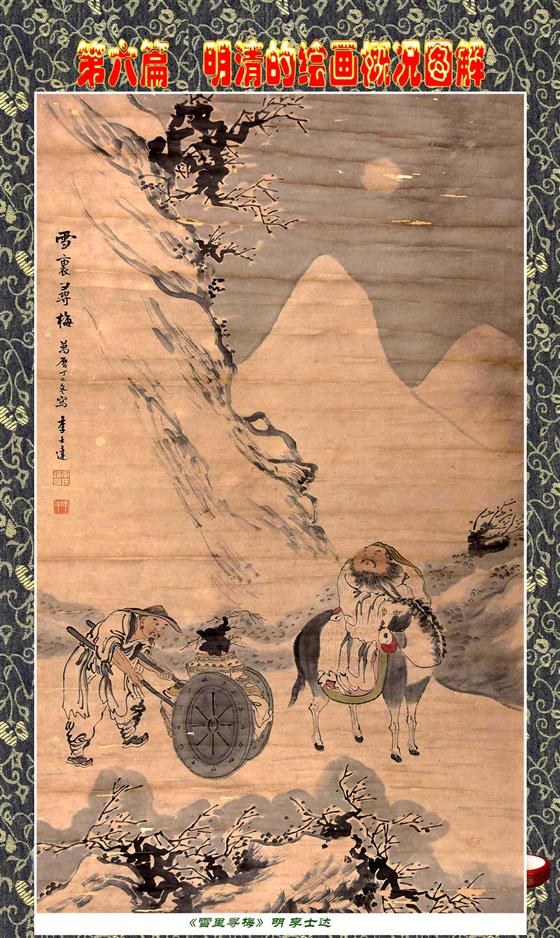 第六篇 明清的绘画概况图解
雪裏尋梅
萬曆丁未寫 李士達
《雪里寻梅》明 李士达